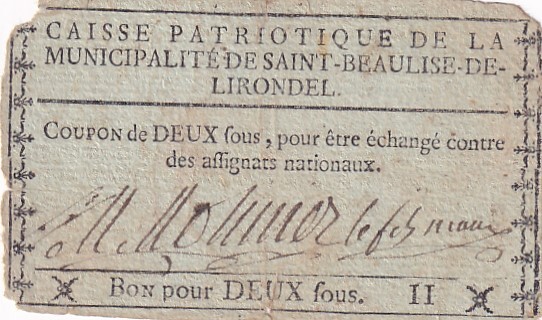 CAISSE PATRIOTIQUE DE LA
MUNICIPALITÉ DE SAINT-BEAULISE-DE-
LIRONDEL.
COUPON de DEUX ſous, pour être échangé contre
des aſſignats nationaux.
BON pour DEUX ſous. II